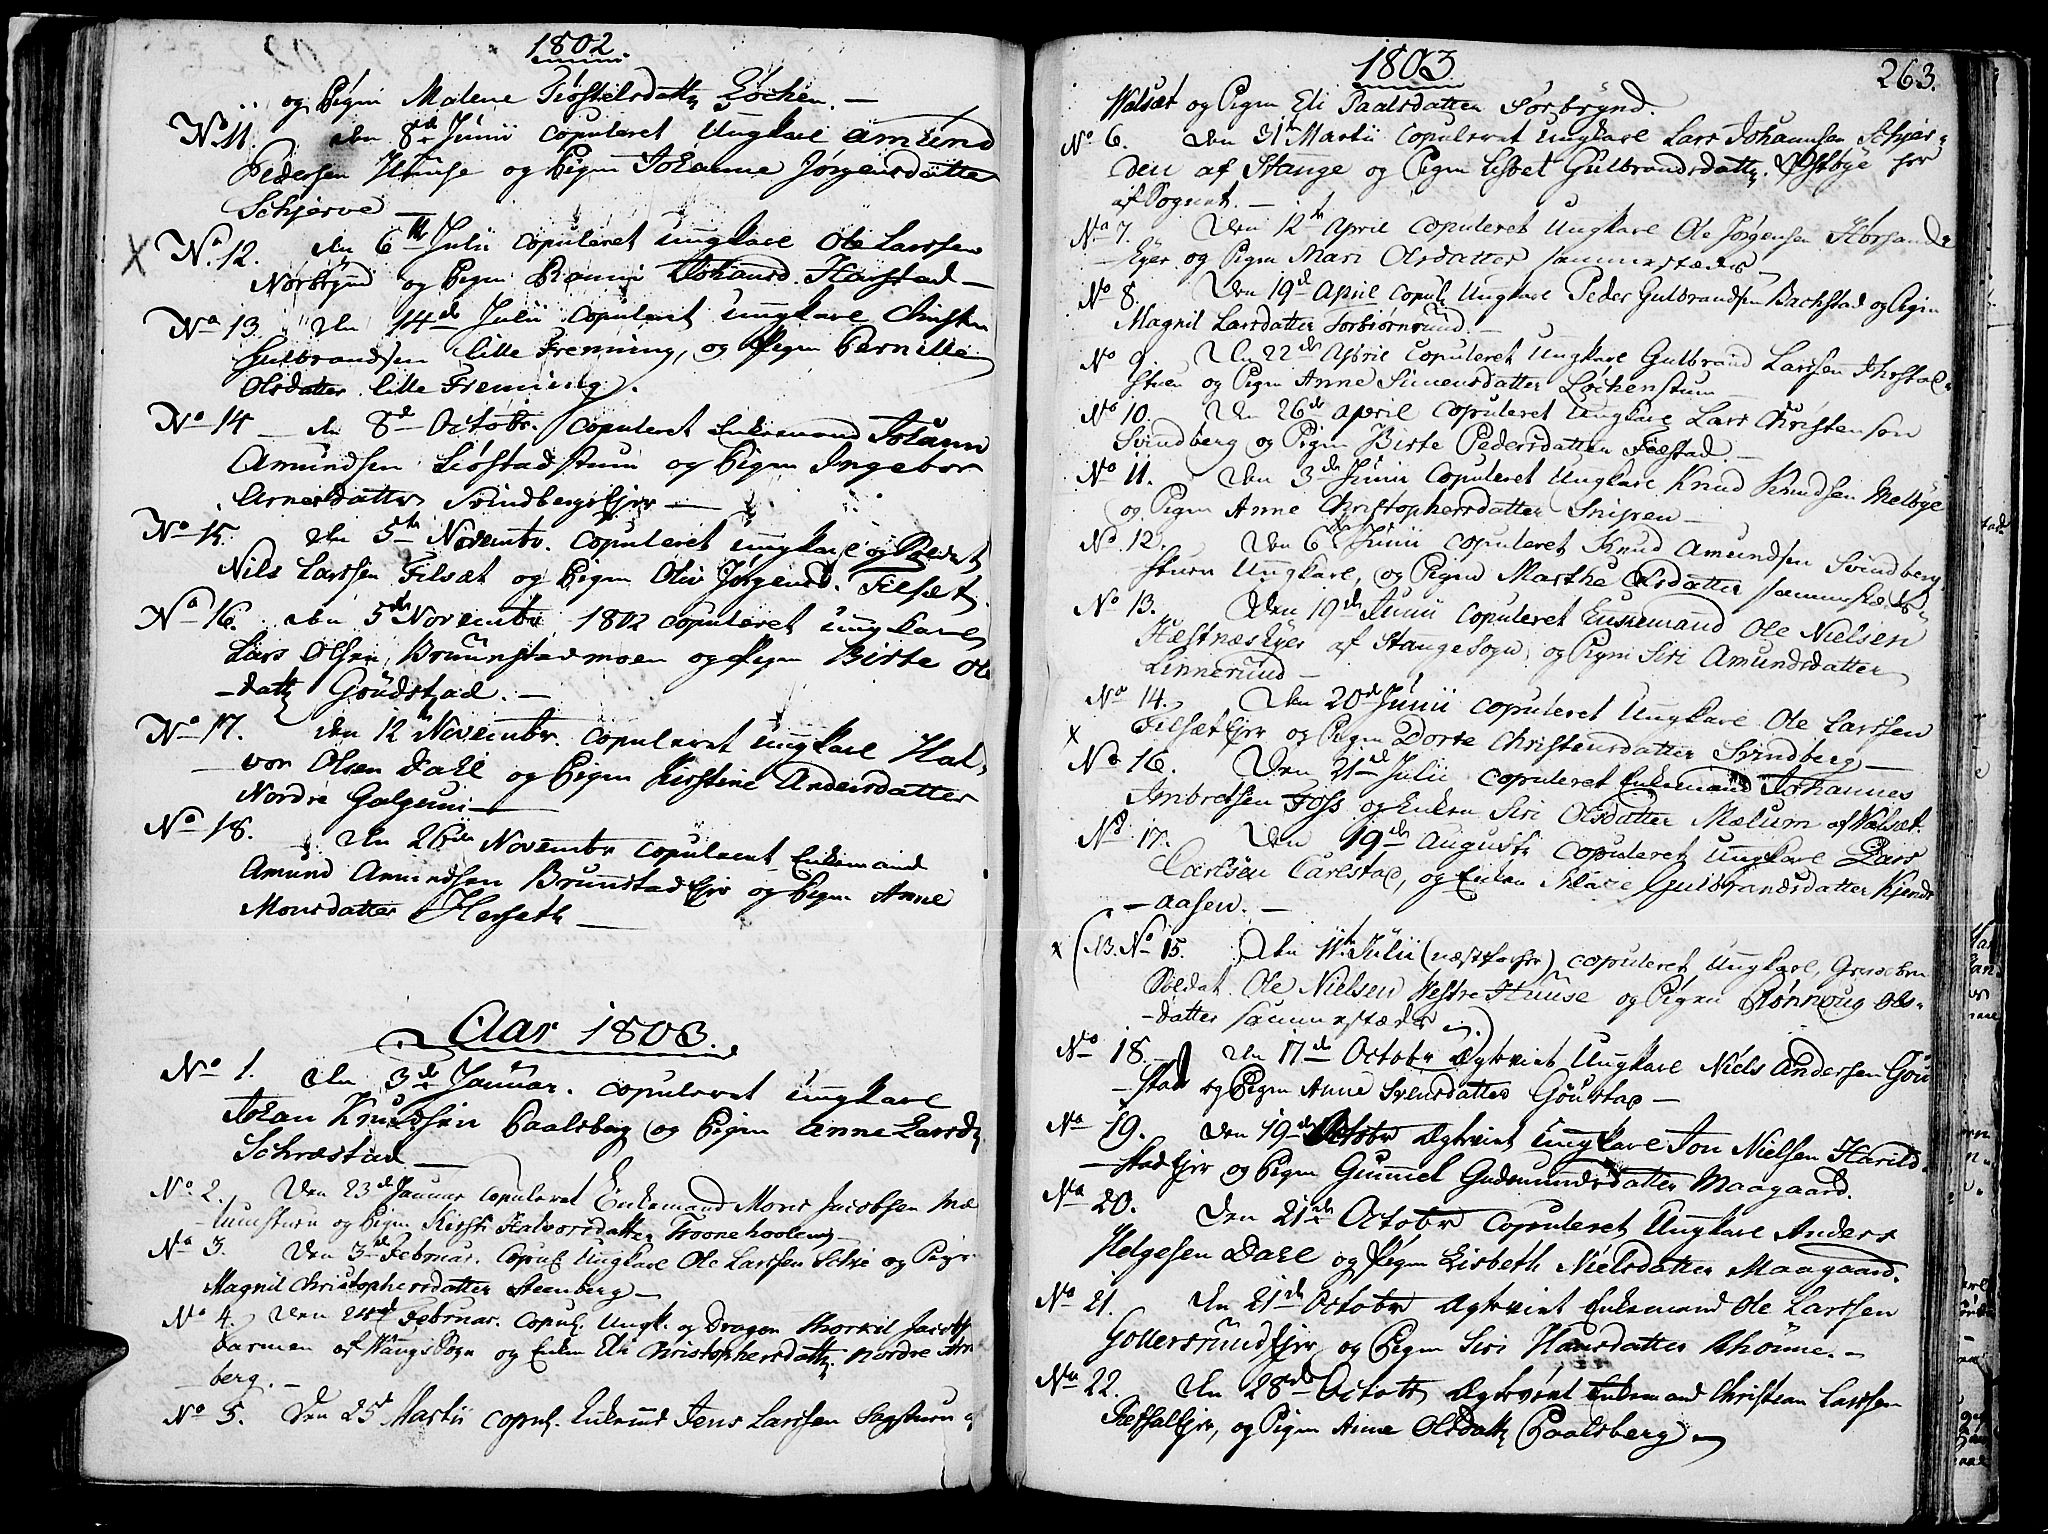 1802.
og Pigen Malene Kiøstelsdatt Løchen. —
No 11. den 8de Junii copuleret Ungkarl Amund
Pedersen Huuse og Pigen Johanne Jørgensdatter
Schjerve —
X No 12. den 6te Julii copuleret Ungkarl Ole Larssen
Norbrynd og Pigen Johansd. Harstad —
No 13. den 14de Julii copuleret Ungkarl Christen
Gulbrandsen lille Frenning, og Pigen Pernille
Olsdatter lille Frenning.
No 14 den 8de Octobr. copuleret Enkemand Johann
Amundsen og Pigen Ingebor
Arnesdatter Svindbergsejer —
No 15. den 5te Novembr. copuleret Ungkarl og Soldat
Nils Larssen Filsæt og Pigen Oliv Jørgensd. Filsæt
No 16. den 5te Novembr 1802 copuleret Ungkarl
Lars Olsen Bruunstadmoen og Pigen Birte Ols
-datt Goudstad. —
No 17. den 12te Novembr. copuleret Ungkarl Hal-
vor Olsen Dahl og Pigen Kirstine Andersdatter
Nordre Galgeum —
No 18. den 26de Novembr copuleret Enkemand
Amund Amundsen Brunstadejer og Pigen Anne
Monsdatter Herseth —
Aar 1803.
No 1. den 3de Januar. copuleret Ungkarl
Johan Knudsen Paalsberg og Pigen Anne Larsd
Schræstad —
No 2. Den 23de Januar copuleret Enkemand Mons Jacobsen Mæ
-lumstuen og Pigen Kirsti Halvorsdatter
No 3. Den 3de Februar. Copul. Ungkarl Ole Larssen og Pigen
Magnil Christophersdatter Steenberg —
No 4. Den 24de Februar. Copul. Ungk. og Dragon Thorkil Jacobs
af Vangs Sogn og Enken Eli Christophersdatt Nordre
-berg. —
No 5. Den 25de Martii copul. Enkemd Jens Larssen Sagstuen af
1803
263.
Valsæt og Pigen Eli Paalsdatter Sørbrynd.
No 6. Den 31te Martii copuleret Ungkarl Lars Johannsen Schjær-
den af Stange og Pigen Lisbet Gulbrandsdatt. Østbye her
af Sognet. —
No 7. Den 12te April copuleret Ungkarl Ole Jørgensen
Ejer og Pigen Mari Olsdatter sammestæds —
No 8. Den 19de April Copul. Ungkarl Peder Gulbrandsen Bachstad og Pigen
Magnil Larsdatter Torbiørnsrud. —
No 9. Den 22de April copuleret Ungkarl Gulbrand Larssen
stuen og Pigen Anne Simensdatter Løchenstuen —
No 10. Den 26de April copuleret Ungkarl Lars Christensen
Svindberg og Pigen Birte Pedersdatter Fæstad. —
No 11. Den 3de Junii copuleret Ungkarl Knud Knudsen Melbye
og Pigen Anne Christophersdatter Snipen —
No 12. Den 6te Junii copuleret Knud Amundsen Svindberg-
stuen Ungkarl, og Pigen Marthe Olsdatter sammestæds
No 13. Den 19de Junii copuleret Enkemand Ole Nielsen
Hæstnæsejer af Stange Sogn og Pigen Siri Amundsdatter
Linnerud —
No 14. Den 20de Junii copuleret Ungkarl Ole Larssen
x Filsætejer og Pigen Dorte Christensdatter Svindberg —
No 16. Den 21de Julii copuleret Enkemand Johannes
Imbretsen Foss og Enken Siri Olsdatter Mælum af Valsæt
No 17. Den 19de Augusti copuleret Ungkarl Lars
Carlsen Carlstad, og Enken Gulbrandsdatter
-aasen. —
x (NB. No 15. Den 11te Julii (næst forhen) copuleret Ungkarl,
Soldat Ole Nielsen Westre Huuse og Pigen Rønnoug Ols-
-datter sammestæds.)
No 18. — Den 17de Octobr Ægteviet Ungkarl Niels Andersen Gou
-stad og Pigen Anne Svensdatter Goustad —
No 19. Den 19de Octobr Ægteviet Ungkarl Jon Nielsen Harild-
-stadejer og Pigen Gunnel Gudmundsdatter Maagaard.
No 20. Den 21de Octobr copuleret Ungkarl Anders
Helgesen Dahl og Pigen Lisbeth Nielsdatter Maagaard.
No 21. Den 21de Octobr Ægteviet Enkemand Ole Larssen
Gollersrudejer og Pigen Siri Hansdatter Rhönne. —
No 22. Den 28de Octobr Ægteviet Enkemand Christian Larssen
og Pigen Anne Olsdatt Paalsberg —